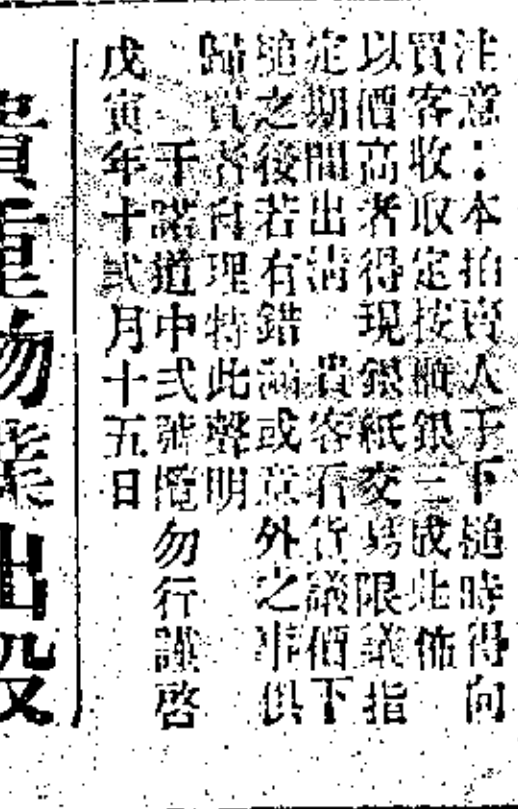 注意：本拍賣人于下鎚時得向
買客收取定按櫃銀三成此佈
以價高者得現銀紙交易限議指
定期間出清 貴客若肯議價下
鎚之後若有錯漏或意外之事俱
歸買者自理特此聲明
干諾道中弍號勿行謹啓
戊寅年十弍月十五日
貴重物業出投